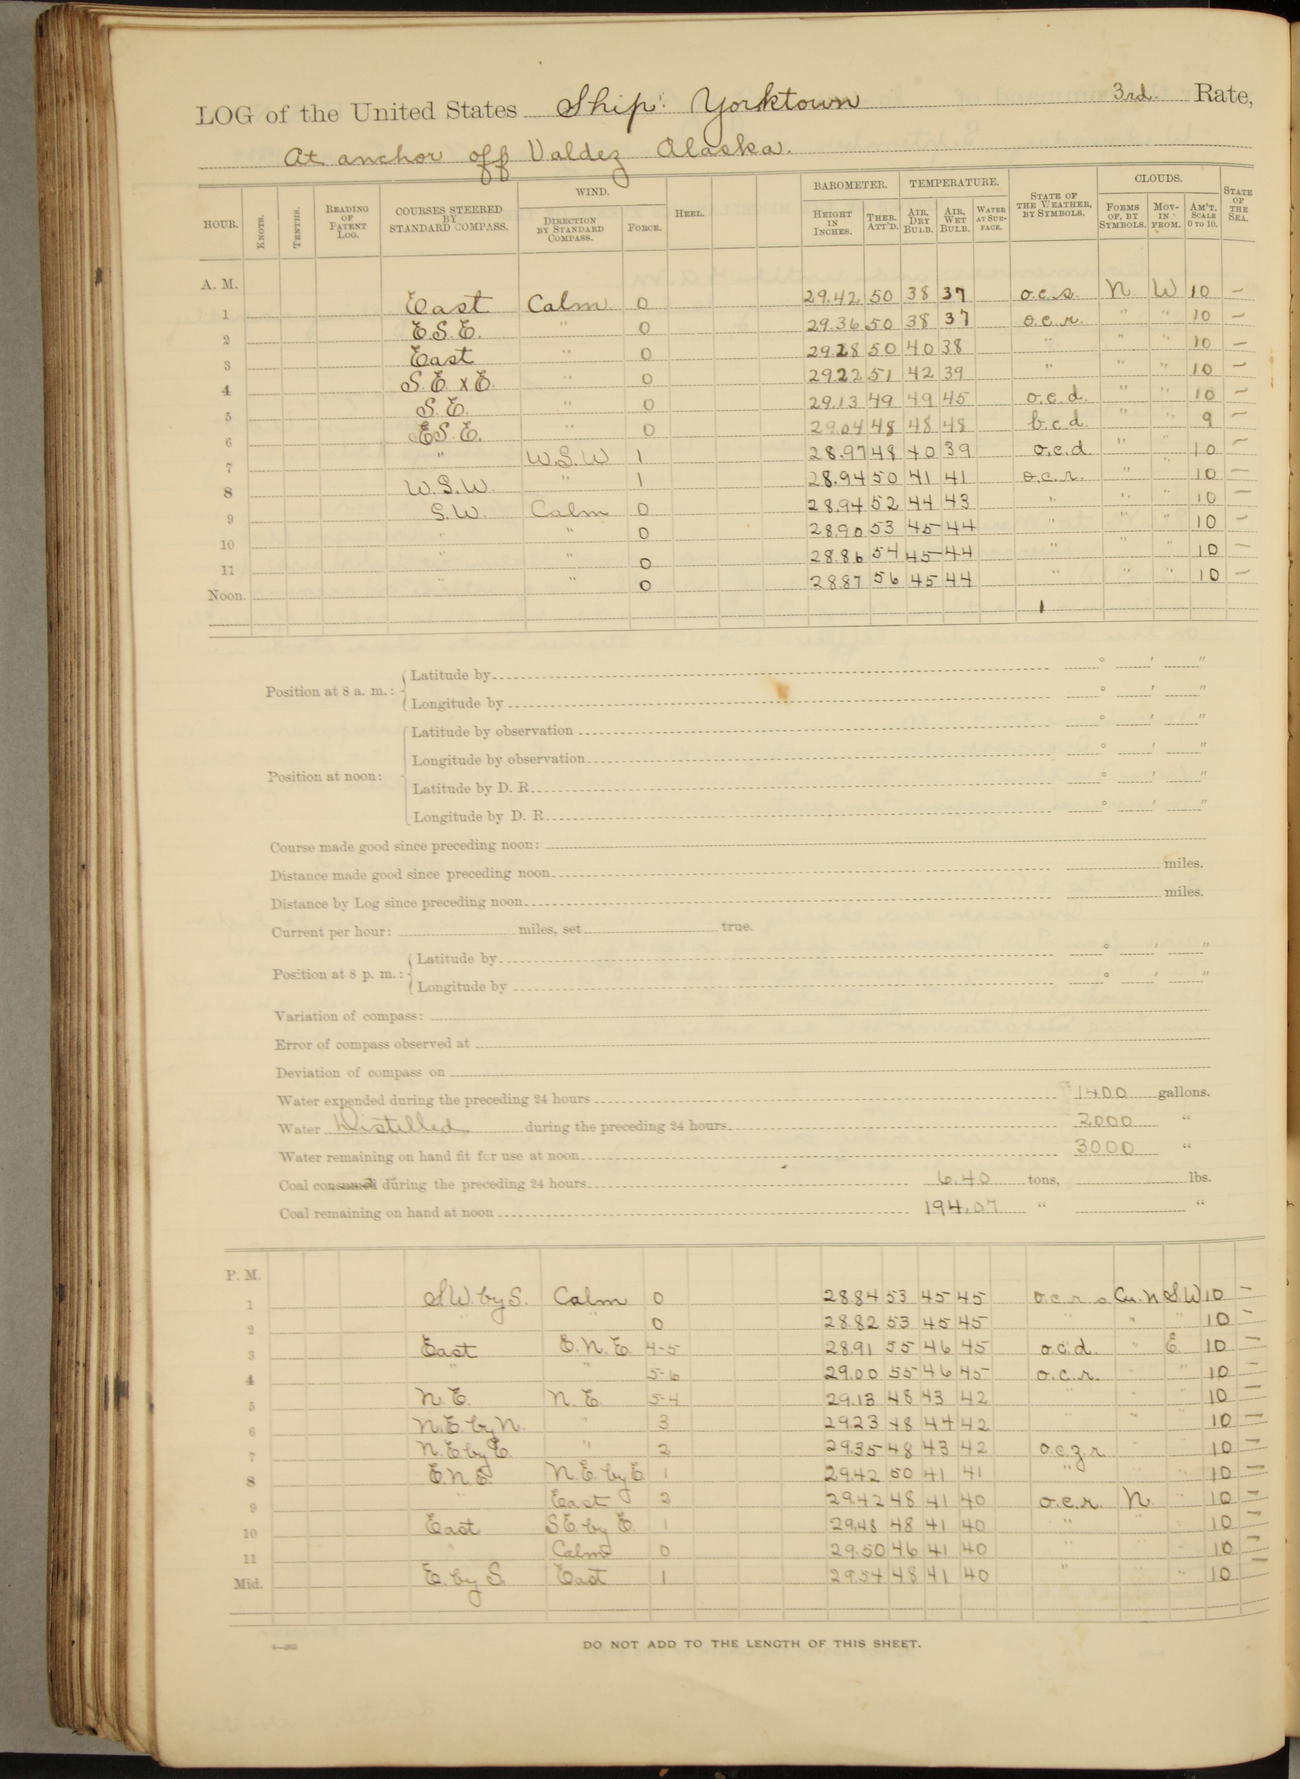 LOG of the United States Ship Yorktown 3rd. Rate,
At anchor off Valdez Alaska.
HOUR. KNOTS. TENTHS. READING OF PATENT LOG. COURSES STEERED BY STANDARD COMPASS. WIND. DIRECTION BY STANDARD COMPASS. FORCE. HEEL. BAROMETER. HEIGHT IN INCHES. THER. ATT'D. TEMPERATURE. AIR, DRY BULB. AIR, WET BULB. WATER AT SURFACE. STATE OF THE WEATHER, BY SYMBOLS. CLOUDS. FORMS OF, BY SYMBOLS. MOVING FROM. AM'T. SCALE 0 TO 10. STATE OF THE SEA.
A. M.
1 East Calm 0 29.42 50 38 37 o.c.s. N W 10 —
2 E.S.E. " 0 29.36 50 38 37 o.c.r. " " 10 —
3 East " 0 29.28 50 40 38 " " " 10 —
4 S.E. x E. " 0 29.22 51 42 39 " " " 10 —
5 S.E. " 0 29.13 49 49 45 o.c.d. " " 10 —
6 E.S.E. " 0 29.04 48 48 48 b.c.d. " " 9 —
7 " W.S.W 1 28.97 48 40 39 o.c.d " " 10 —
8 W.S.W. " 1 28.94 50 41 41 o.c.r. " " 10 —
9 S.W. Calm 0 28.94 52 44 43 " " " 10 —
10 " " 0 28.90 53 45 44 " " " 10 —
11 " " 0 28.86 54 45 44 " " " 10 —
Noon. " " 0 28.87 56 45 44 " " " 10 —
Position at 8 a. m.: Latitude by ° ' "
Longitude by ° ' "
Position at noon: Latitude by observation ° ' "
Longitude by observation ° ' "
Latitude by D. R. ° ' "
Longitude by D. R. ° ' "
Course made good since preceding noon:
Distance made good since preceding noon miles.
Distance by Log since preceding noon miles.
Current per hour: miles, set true.
Position at 8 p. m.: Latitude by ° ' "
Longitude by ° ' "
Variation of compass:
Error of compass observed at
Deviation of compass on
Water expended during the preceding 24 hours 1400 gallons.
Water Distilled during the preceding 24 hours 2000 "
Water remaining on hand fit for use at noon 3000 "
Coal consumed during the preceding 24 hours 6.40 tons, lbs.
Coal remaining on hand at noon 194.07 " "
P. M.
1 SW. by S. Calm 0 28.84 53 45 45 Cu.N S.W 10 —
2 " 0 28.82 53 45 45 " " " 10 —
3 East E.N.E. 4-5 28.91 55 46 45 o.c.d. " E. 10 —
4 " " 5-6 29.00 55 46 45 o.c.r. " " 10 —
5 N.E. N.E. 5-4 29.13 48 43 42 " " " 10 —
6 N.E. by N. " 3 29.23 48 44 42 " " " 10 —
7 N.E. by E. " 2 29.35 48 43 42 o.c.z.r. " " 10 —
8 E.N.E N.E. by E. 1 29.42 50 41 41 " " " 10 —
9 " East 2 29.42 48 41 40 o.c.r. N. " 10 —
10 East S.E. by E. 1 29.48 48 41 40 " " " 10 —
11 " Calm 0 29.50 46 41 40 " " " 10 —
Mid. E. by S. East 1 29.54 48 41 40 " " " 10 —
DO NOT ADD TO THE LENGTH OF THIS SHEET.